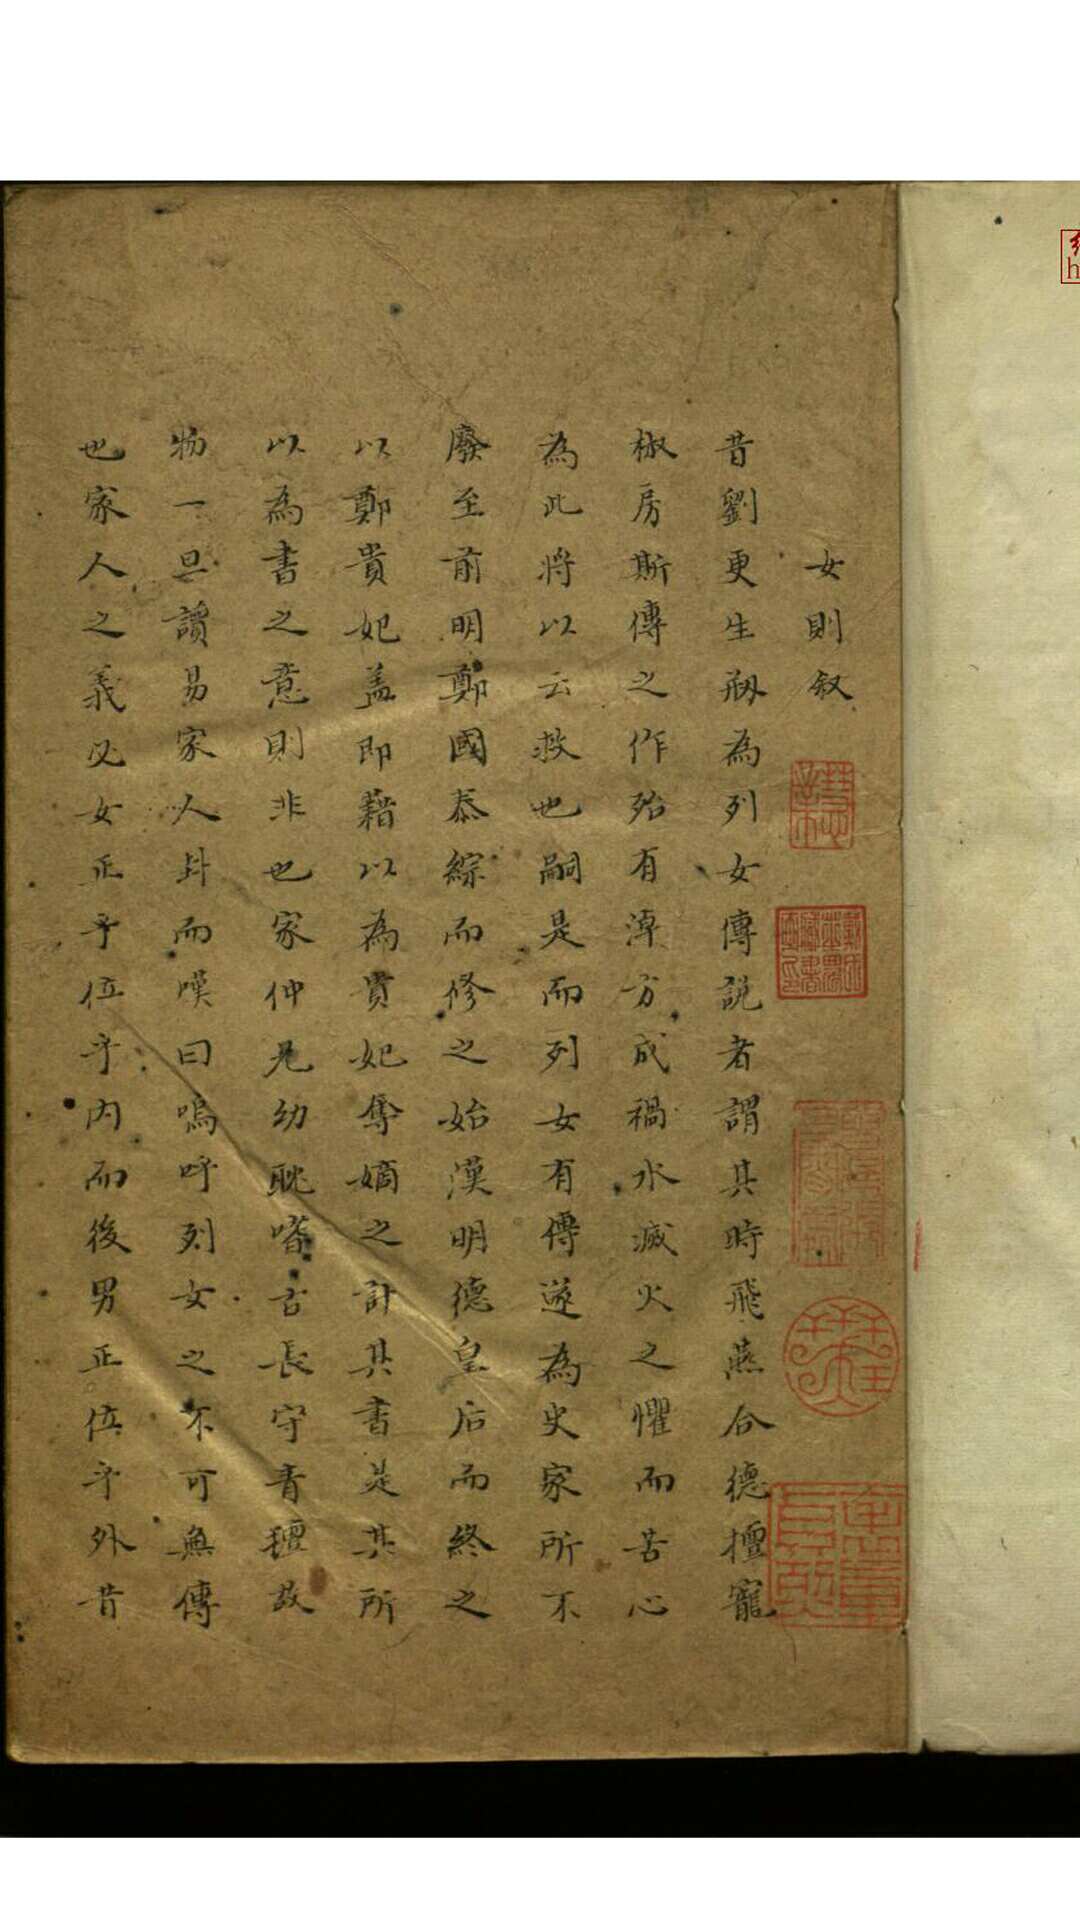 女則叙
昔劉更生剏為列女傳説者謂其時飛燕合德擅寵
椒房斯傳之作殆有淖方成禍水滅火之懼而苦心
為此將以云救也嗣是而列女有傳遂為史家所不
廢至前明鄭國泰綜而修之始漢明德皇后而終之
以鄭貴妃盖即藉以為貴妃奪嫡之計其書是其所
以為書之意則非也家仲兄幼耽嗜古長守青氊故
物一旦讀易家人卦而嘆曰嗚呼列女之不可無傳
也家人之義必女正乎位乎内而後男正位乎外昔